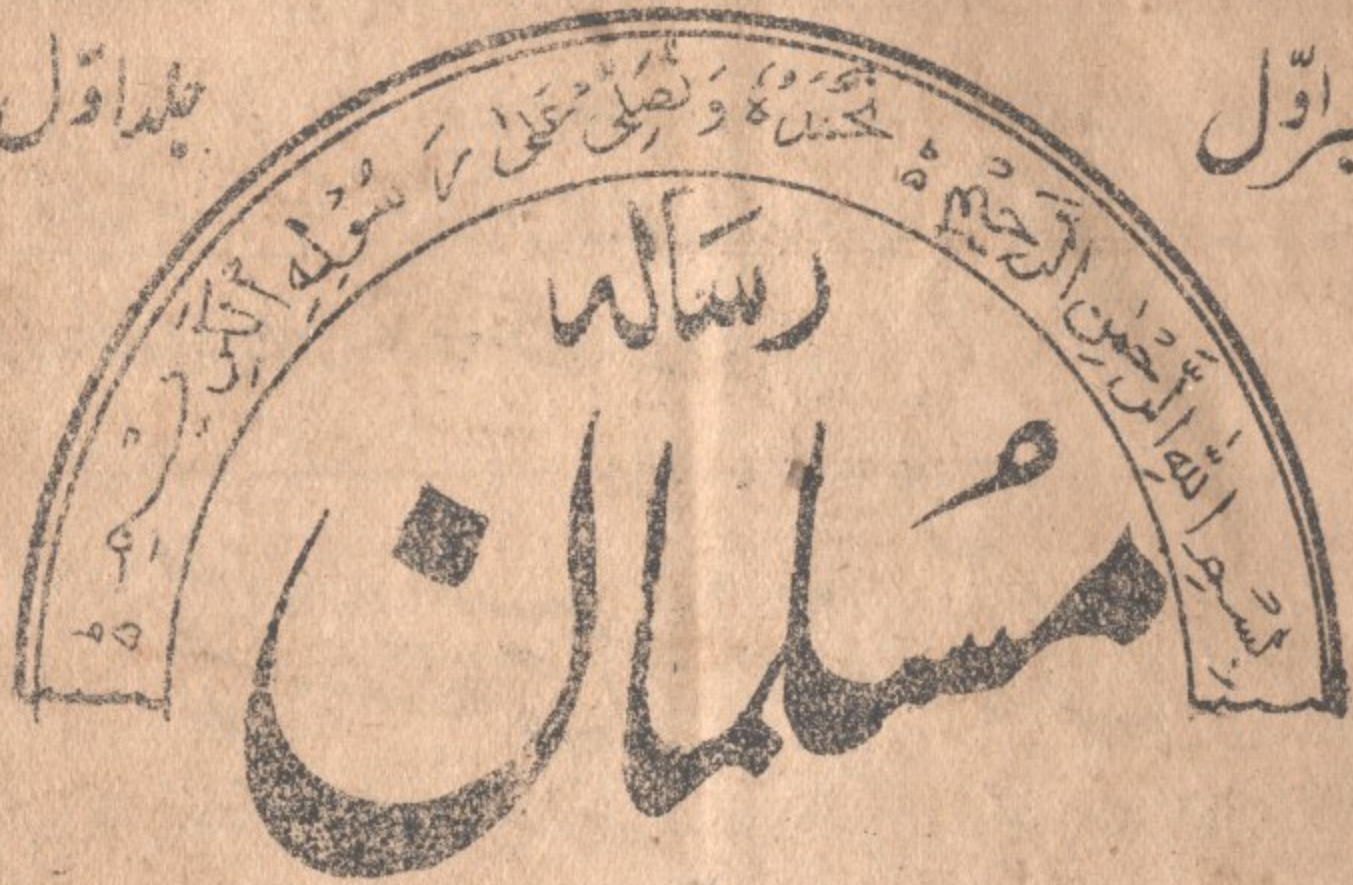 نمبر اوّل
جلد اوّل
بِسْمِ اللهِ الرَّحْمٰنِ الرَّحِيْمِ ۝ نَحْمَدُهٗ وَنُصَلِّىْ عَلٰى رَسُوْلِهِ الْكَرِيْمِ ۝
رسالہ
مُسلمان